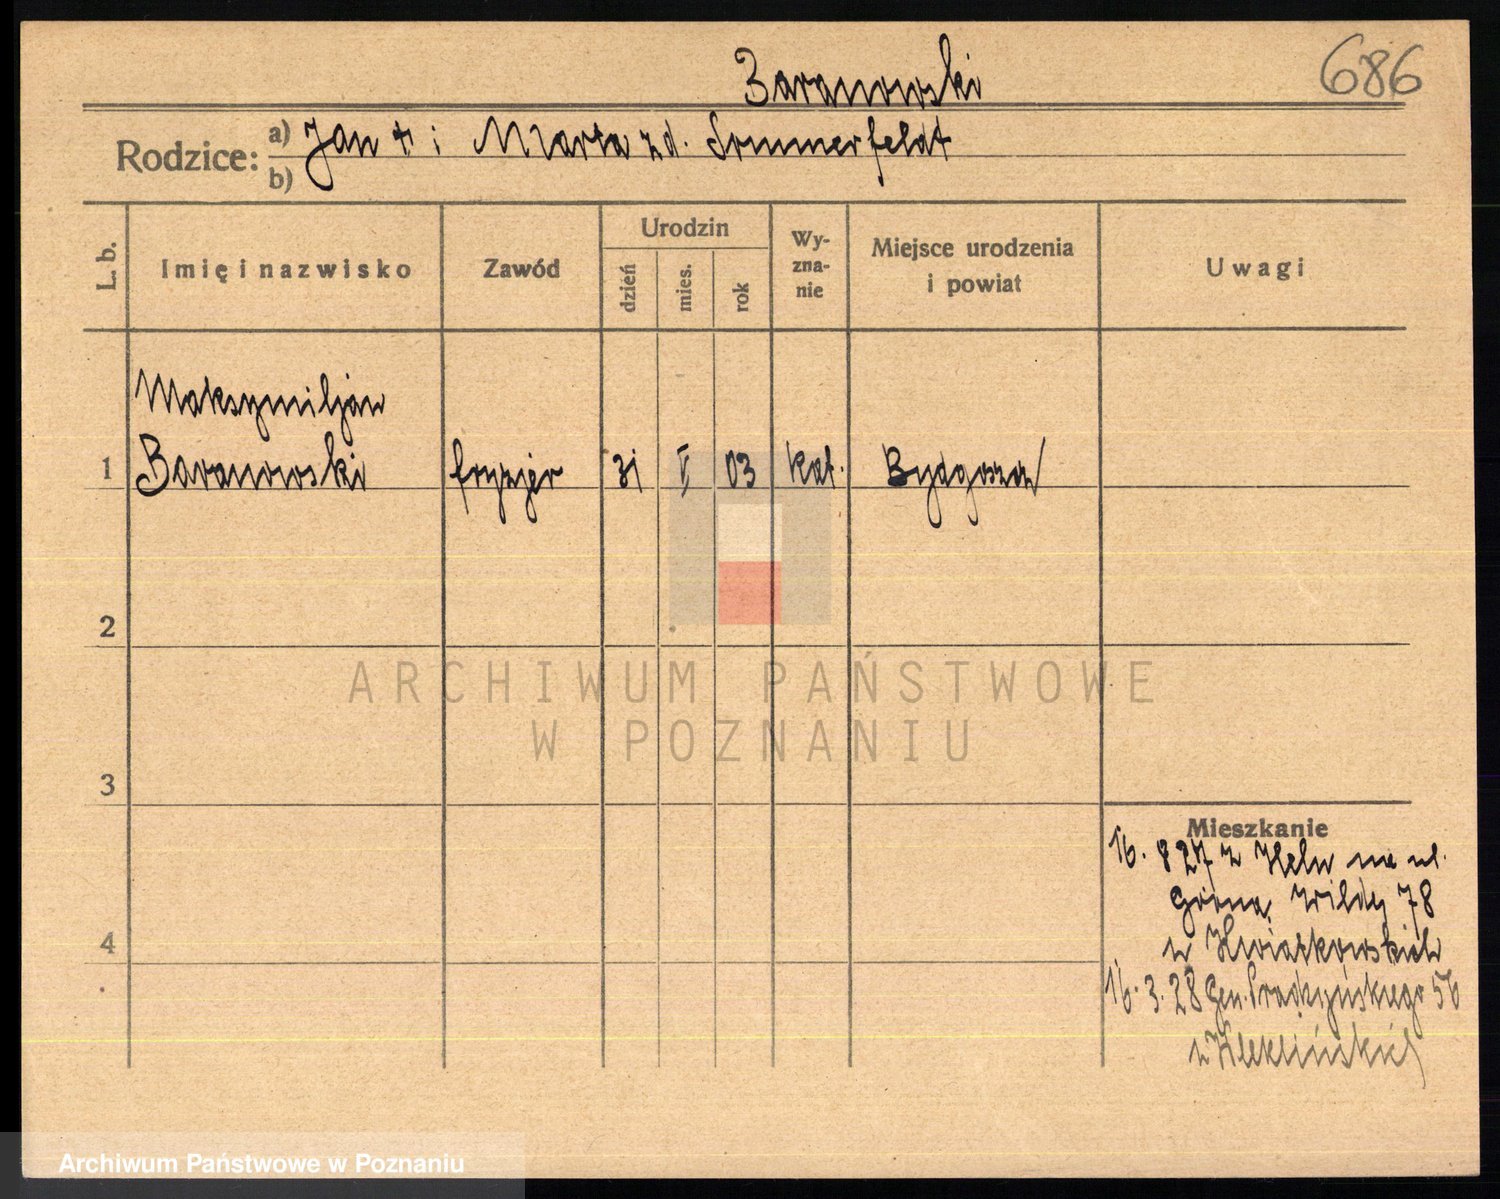 Baranowski
686
Rodzice:
a) Jan † i Marta zd. Sommerfeldt
b)
L. b.
Imię i nazwisko
Zawód
Urodzin
dzień
mies.
rok
Wy-
zna-
nie
Miejsce urodzenia
i powiat
Uwagi
Maksymiljan
1 Baranowski fryzjer 31 V 03 kat. Bydgoszcz
2
3
4
Mieszkanie
16. 8 27 z Helu na ul.
Górną Wildę 78
u Kwiatkowskich
16. 3. 28 Gen. Prądzyńskiego 56
u Kleklińskich
ARCHIWUM PAŃSTWOWE
W POZNANIU
Archiwum Państwowe w Poznaniu